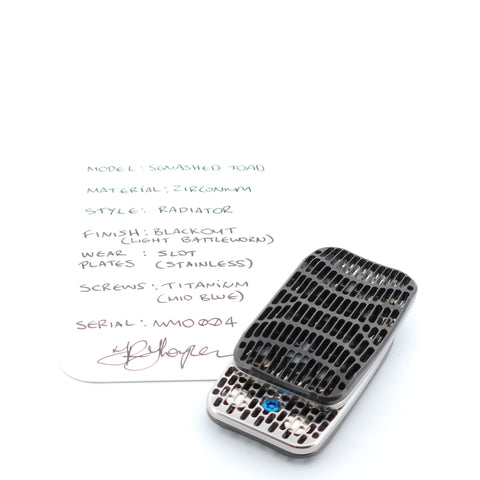 MODEL: SQUASHED TOAD
MATERIAL: ZIRCONIUM
STYLE: RADIATOR
FINISH: BLACKOUT
(LIGHT BATTLEWORN)
WEAR : SLOT
PLATES (STAINLESS)
SCREWS: TITANIUM
(MID BLUE)
SERIAL: MM0004